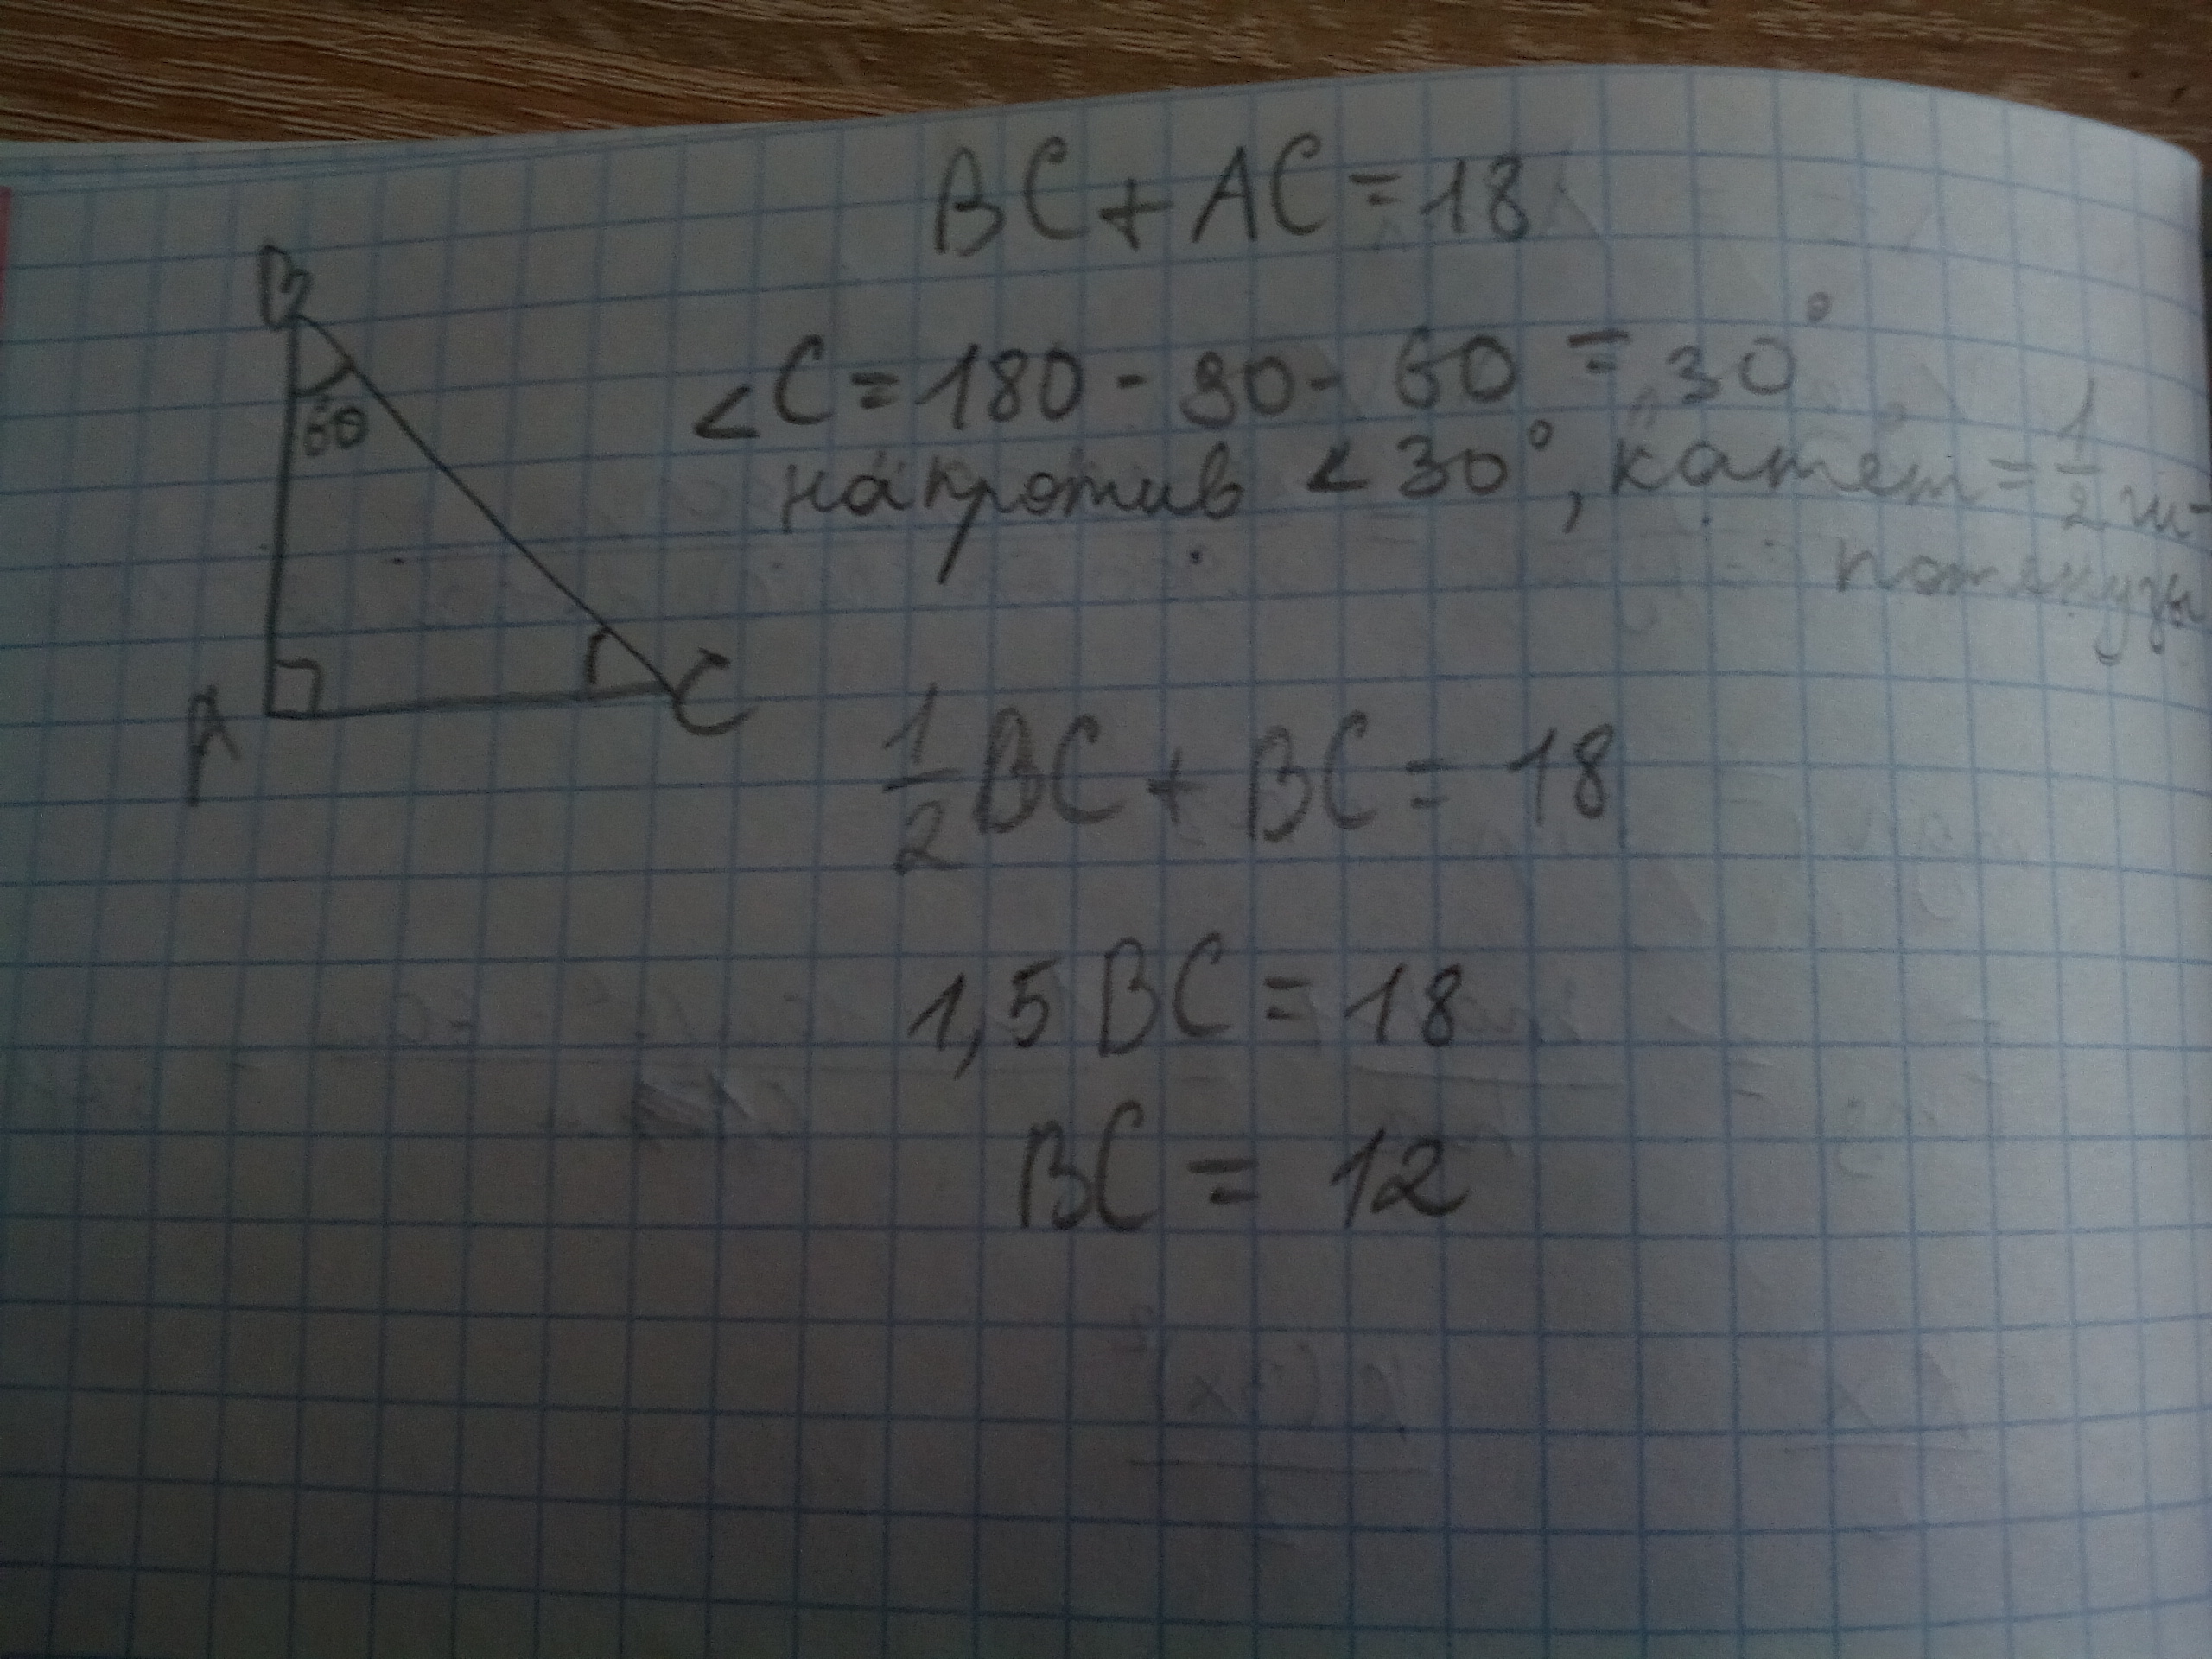 BC + AC = 18
B
60
A
C
<C = 180 - 90 - 60 = 30°
напротив < 30°, катет = 1/2 ги-
потенузы
1/2 BC + BC = 18
1,5 BC = 18
BC = 12